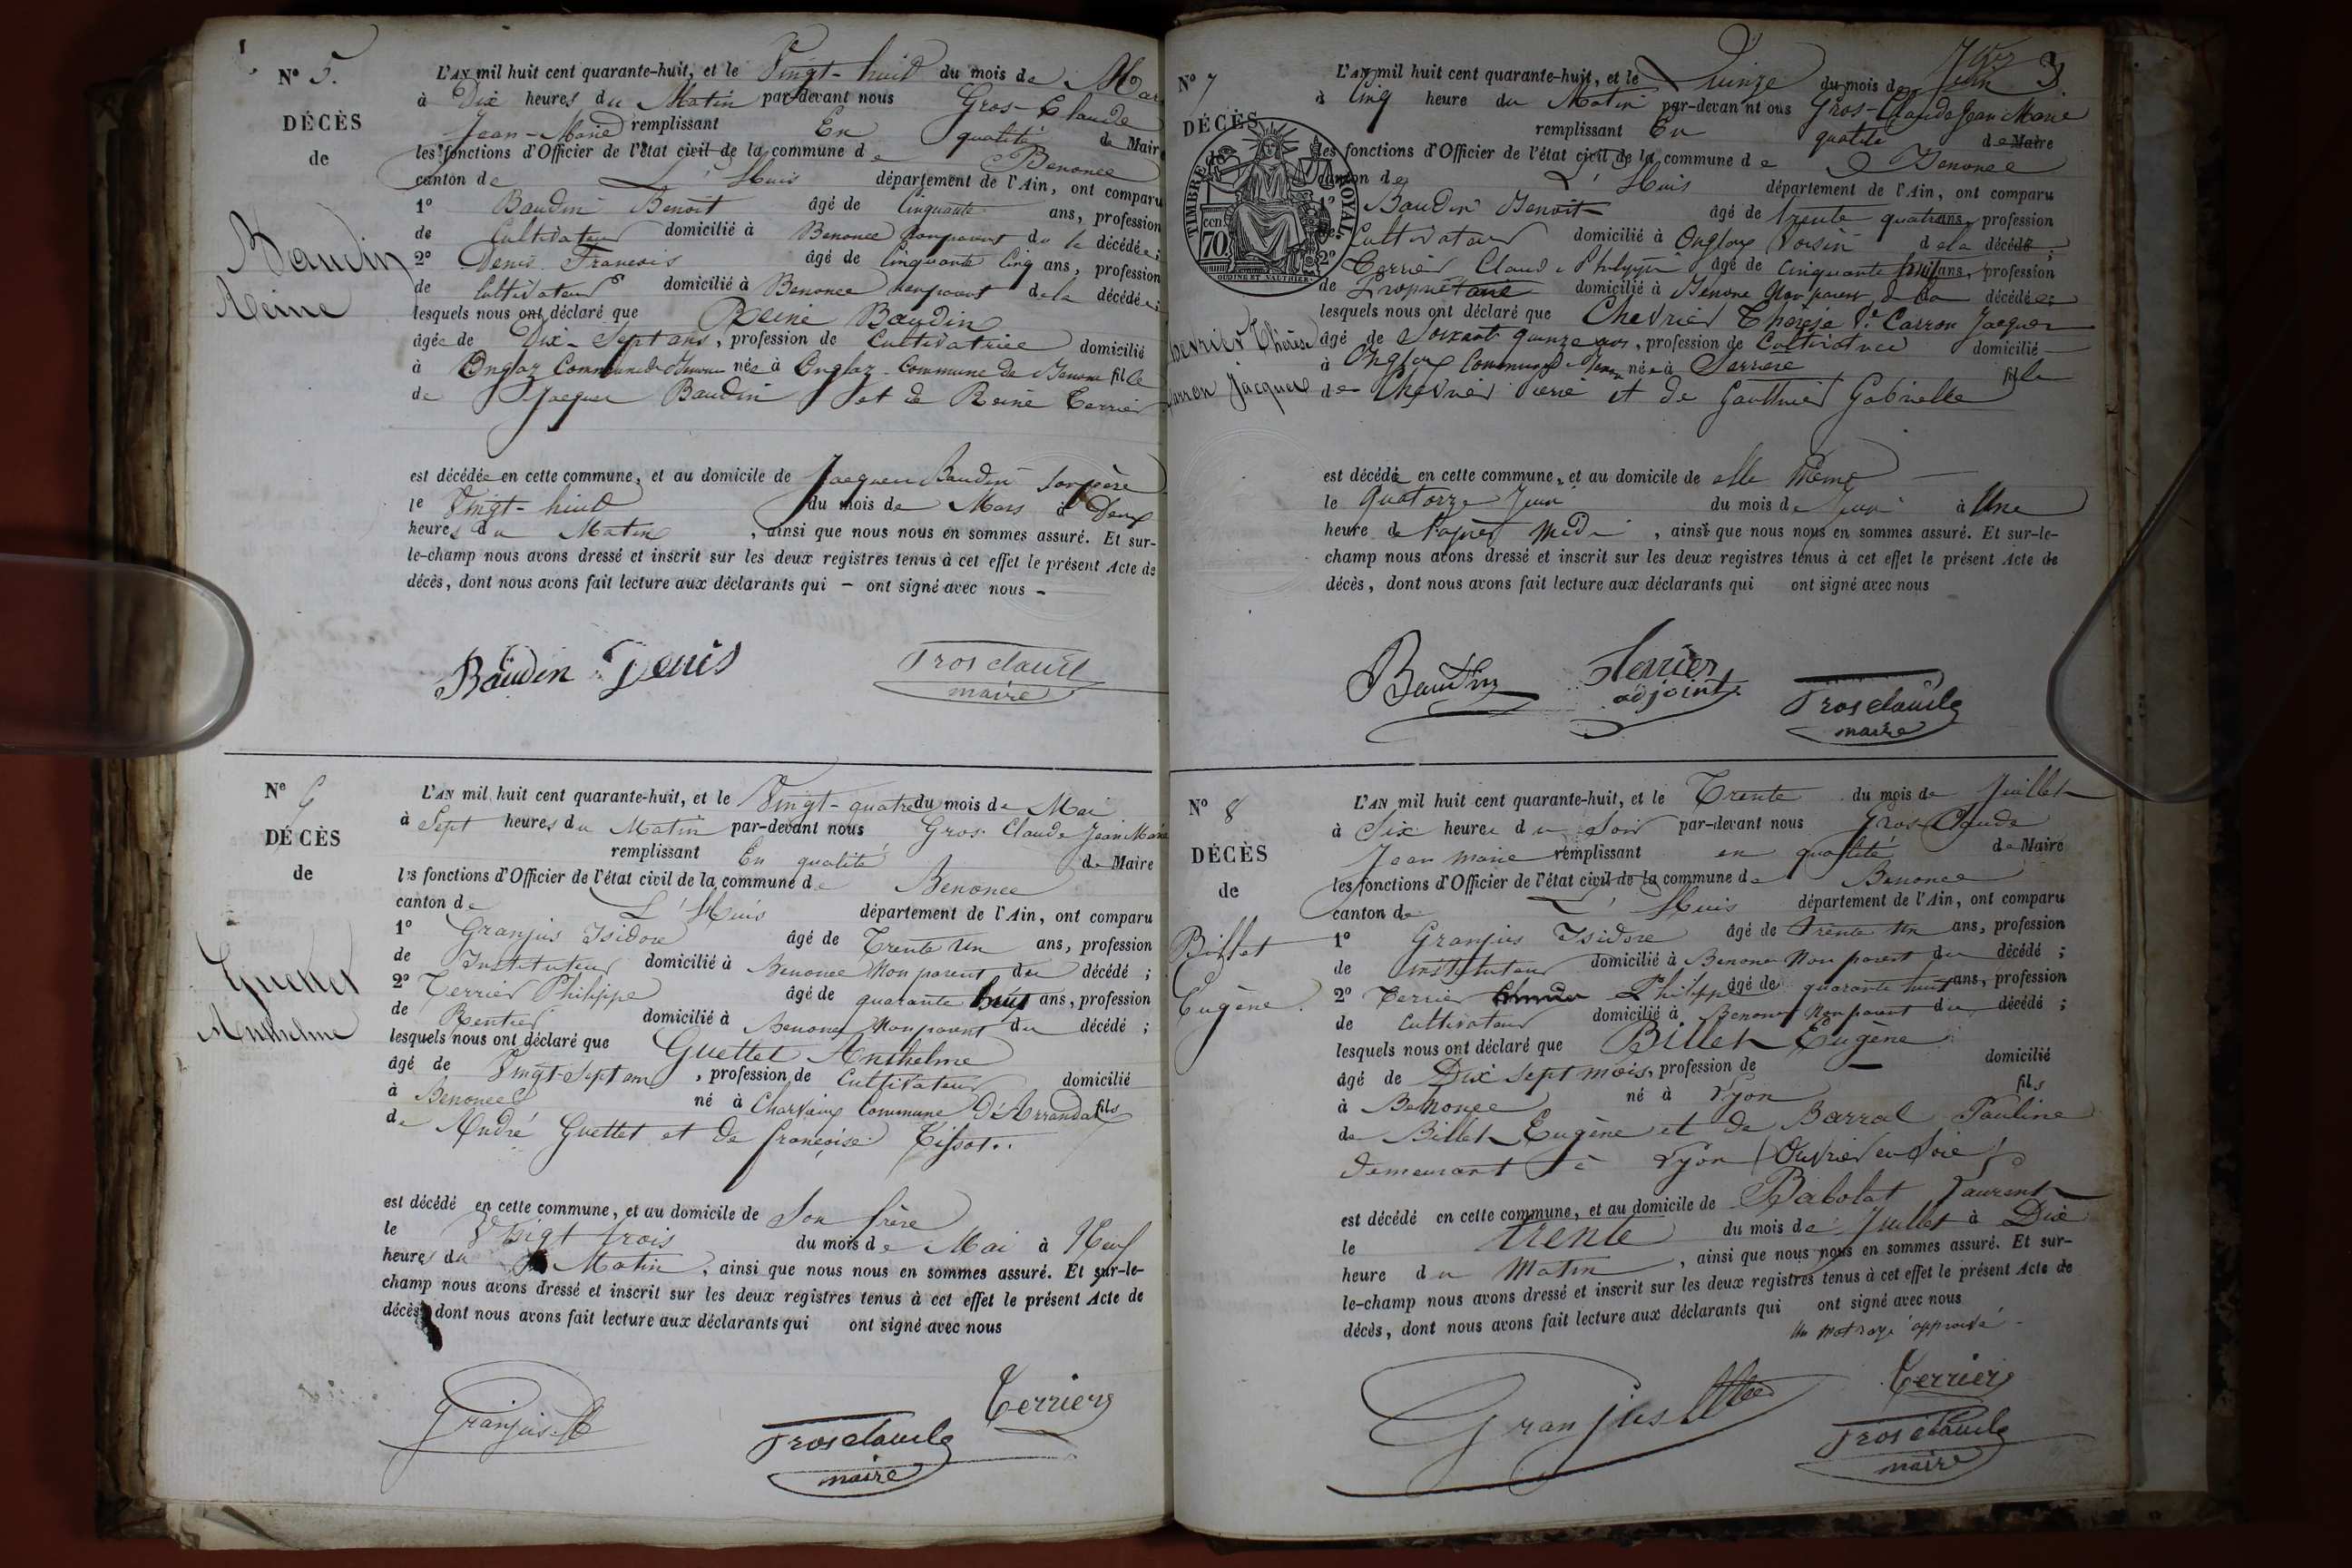 N° 5.
DÉCÈS
de
Baudin
Reine
L'AN mil huit cent quarante-huit, et le Vingt-huit du mois de Mar
à Dix heures du Matin par-devant nous Gros-Claude
Jean-Marie remplissant En qualité de Maire
les fonctions d'Officier de l'état civil de la commune de Benonce
canton de L'Huis département de l'Ain, ont comparu
1° Baudin Benoit âgé de Cinquante ans, profession
de Cultivateur domicilié à Benonce Non parent de la décédée;
2° Denis François âgé de Cinquante Cinq ans, profession
de Cultivateur domicilié à Benonce non parent de la décédée;
lesquels nous ont déclaré que Reine Baudin
âgée de Dix-Sept ans, profession de Cultivatrice domicilié
à Onglaz Commune de Benonce née à Onglaz Commune de Benonce fille
de Jacques Baudin et de Reine Terrier
est décédée en cette commune, et au domicile de Jacques Baudin son père
le Vingt-huit du mois de Mars à Deux
heures du Matin, ainsi que nous nous en sommes assuré. Et sur-
le-champ nous avons dressé et inscrit sur les deux registres tenus à cet effet le présent Acte de
décès, dont nous avons fait lecture aux déclarants qui - ont signé avec nous -
Baudin Denis Grosclaude
maire
N° 6
DÉCÈS
de
Guettet
Anthelme
L'AN mil huit cent quarante-huit, et le Vingt-quatre du mois de Mai
à Sept heures du Matin par-devant nous Gros-Claude Jean Marie
remplissant En qualité de Maire
les fonctions d'Officier de l'état civil de la commune de Benonce
canton de L'Huis département de l'Ain, ont comparu
1° Granjus Isidore âgé de Trente Un ans, profession
de Instituteur domicilié à Benonce Non parent du décédé;
2° Terrier Philippe âgé de quarante huit ans, profession
de Rentier domicilié à Benonce Non parent du décédé;
lesquels nous ont déclaré que Guettet Anthelme
âgé de Vingt-Sept ans, profession de Cultivateur domicilié
à Benonce né à Charvieux Commune D'Arrandas fils
de André Guettet et de françoise Tissot.
est décédé en cette commune, et au domicile de Son frère
le Vingt trois du mois de Mai à Neuf
heures du Matin, ainsi que nous nous en sommes assuré. Et sur-le-
champ nous avons dressé et inscrit sur les deux registres tenus à cet effet le présent Acte de
décès, dont nous avons fait lecture aux déclarants qui ont signé avec nous
Granjus Grosclaude Terrier
maire
3
N° 7
DÉCÈS
de
TIMBRE ROYAL
70 cen
OUDINE ET VAUTHIER
Chevrier Thérèse
Carron Jacques
L'AN mil huit cent quarante-huit, et le Quinze du mois de Juin
à Cinq heure du Matin par-devant nous Gros-Claude Jean Marie
remplissant En qualité de Maire
les fonctions d'Officier de l'état civil de la commune de Benonce
canton de L'Huis département de l'Ain, ont comparu
1° Baudin Benoit âgé de trente quatre ans, profession
de Cultivateur domicilié à Onglaz Voisin de la décédé;
2° Terrier Claude Philippe âgé de Cinquante huit ans, profession
de Propriétaire domicilié à Benonce Non parent de la décédée;
lesquels nous ont déclaré que Chevrier Therèse Ve Carron Jacques
âgé de Soixante Quinze ans, profession de Cultivatrice domicilié
à Onglaz Commune de Benonce née à Serriere fille
de Chevrier Pierre et de Gauthier Gabrielle
est décédée en cette commune, et au domicile de elle Même
le Quatorze Juin du mois de Juin à Une
heure de l'après Midi, ainsi que nous nous en sommes assuré. Et sur-le-
champ nous avons dressé et inscrit sur les deux registres tenus à cet effet le présent Acte de
décès, dont nous avons fait lecture aux déclarants qui ont signé avec nous
Baudin Terrier
adjoint Grosclaude
maire
N° 8
DÉCÈS
de
Billet
Eugène.
L'AN mil huit cent quarante-huit, et le Trente du mois de Juillet
à Six heures du Soir par-devant nous Gros-Claude
Jean marie remplissant en qualité de Maire
les fonctions d'Officier de l'état civil de la commune de Benonce
canton de L'Huis département de l'Ain, ont comparu
1° Granjus Isidore âgé de trente un ans, profession
de instituteur domicilié à Benonce Non parent du décédé;
2° Terrier Philippe âgé de quarante huit ans, profession
de Cultivateur domicilié à Benonce Non parent du décédé;
lesquels nous ont déclaré que Billet Eugène
âgé de Dix sept mois, profession de domicilié
à Benonce né à Lyon fils
de Billet Eugène et de Barral Pauline
demeurant à Lyon Ouvrier en Soie
est décédé en cette commune, et au domicile de Babolat Laurent
le trente du mois de Juillet à Dix
heure du Matin, ainsi que nous nous en sommes assuré. Et sur-
le-champ nous avons dressé et inscrit sur les deux registres tenus à cet effet le présent Acte de
décès, dont nous avons fait lecture aux déclarants qui ont signé avec nous
Un mot rayé approuvé
Granjus Terrier
Grosclaude
maire